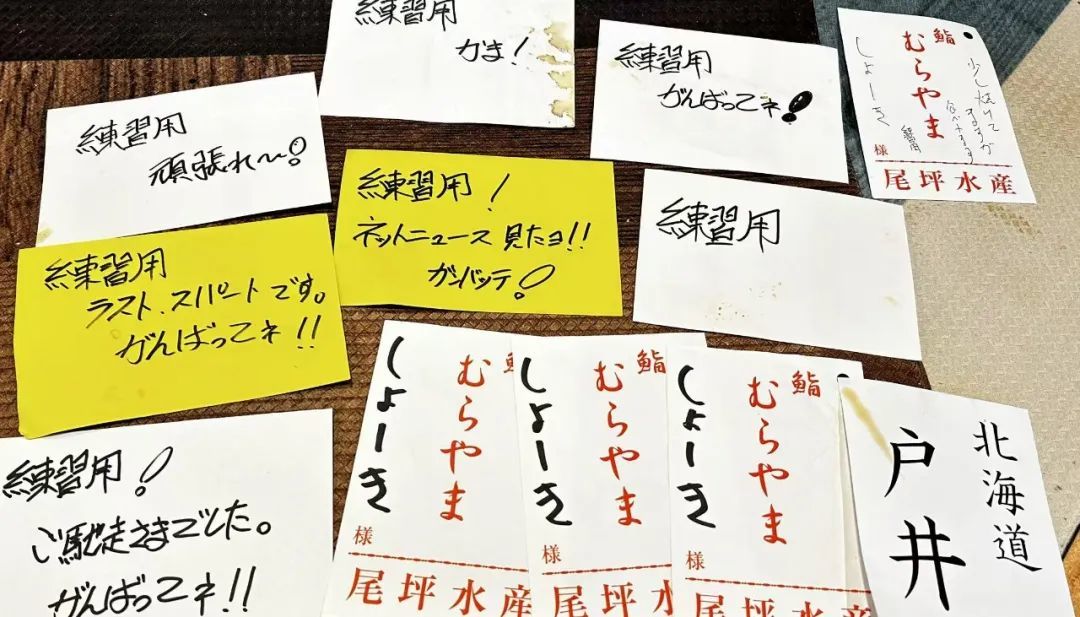 練習用
かま!
練習用
がんばってネ!
鮨
むらやま
しょーき
様
少し焼けて
ますが
食べれます
練習用
尾坪水産
練習用
頑張れ〜!
練習用!
ネットニュース見たヨ!!
ガンバッテ!
練習用
練習用
ラスト.スパートです。
がんばってネ!!
練習用!
ご馳走さまでした。
がんばってネ!!
鮨
むらやま
しょーき
様
尾坪水産
鮨
むらやま
しょーき
様
尾坪水
鮨
むらやま
しょーき
様
尾坪水産
北海道
戸井